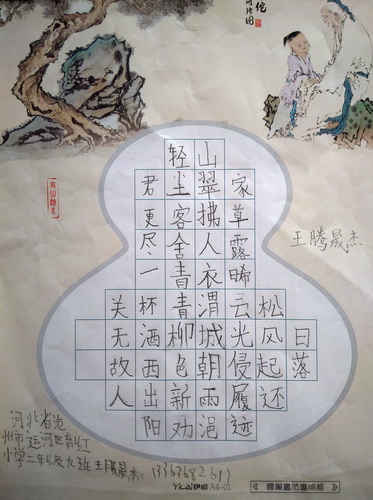 日落
松风起还
家草露晞云光侵履迹
山翠拂人衣渭城朝雨浥
轻尘客舍青青柳色新劝
君更尽一杯酒西出阳
关无故人
王腾晟杰
河北省沧
州市运河区育红
小学二年级九班王腾晟杰